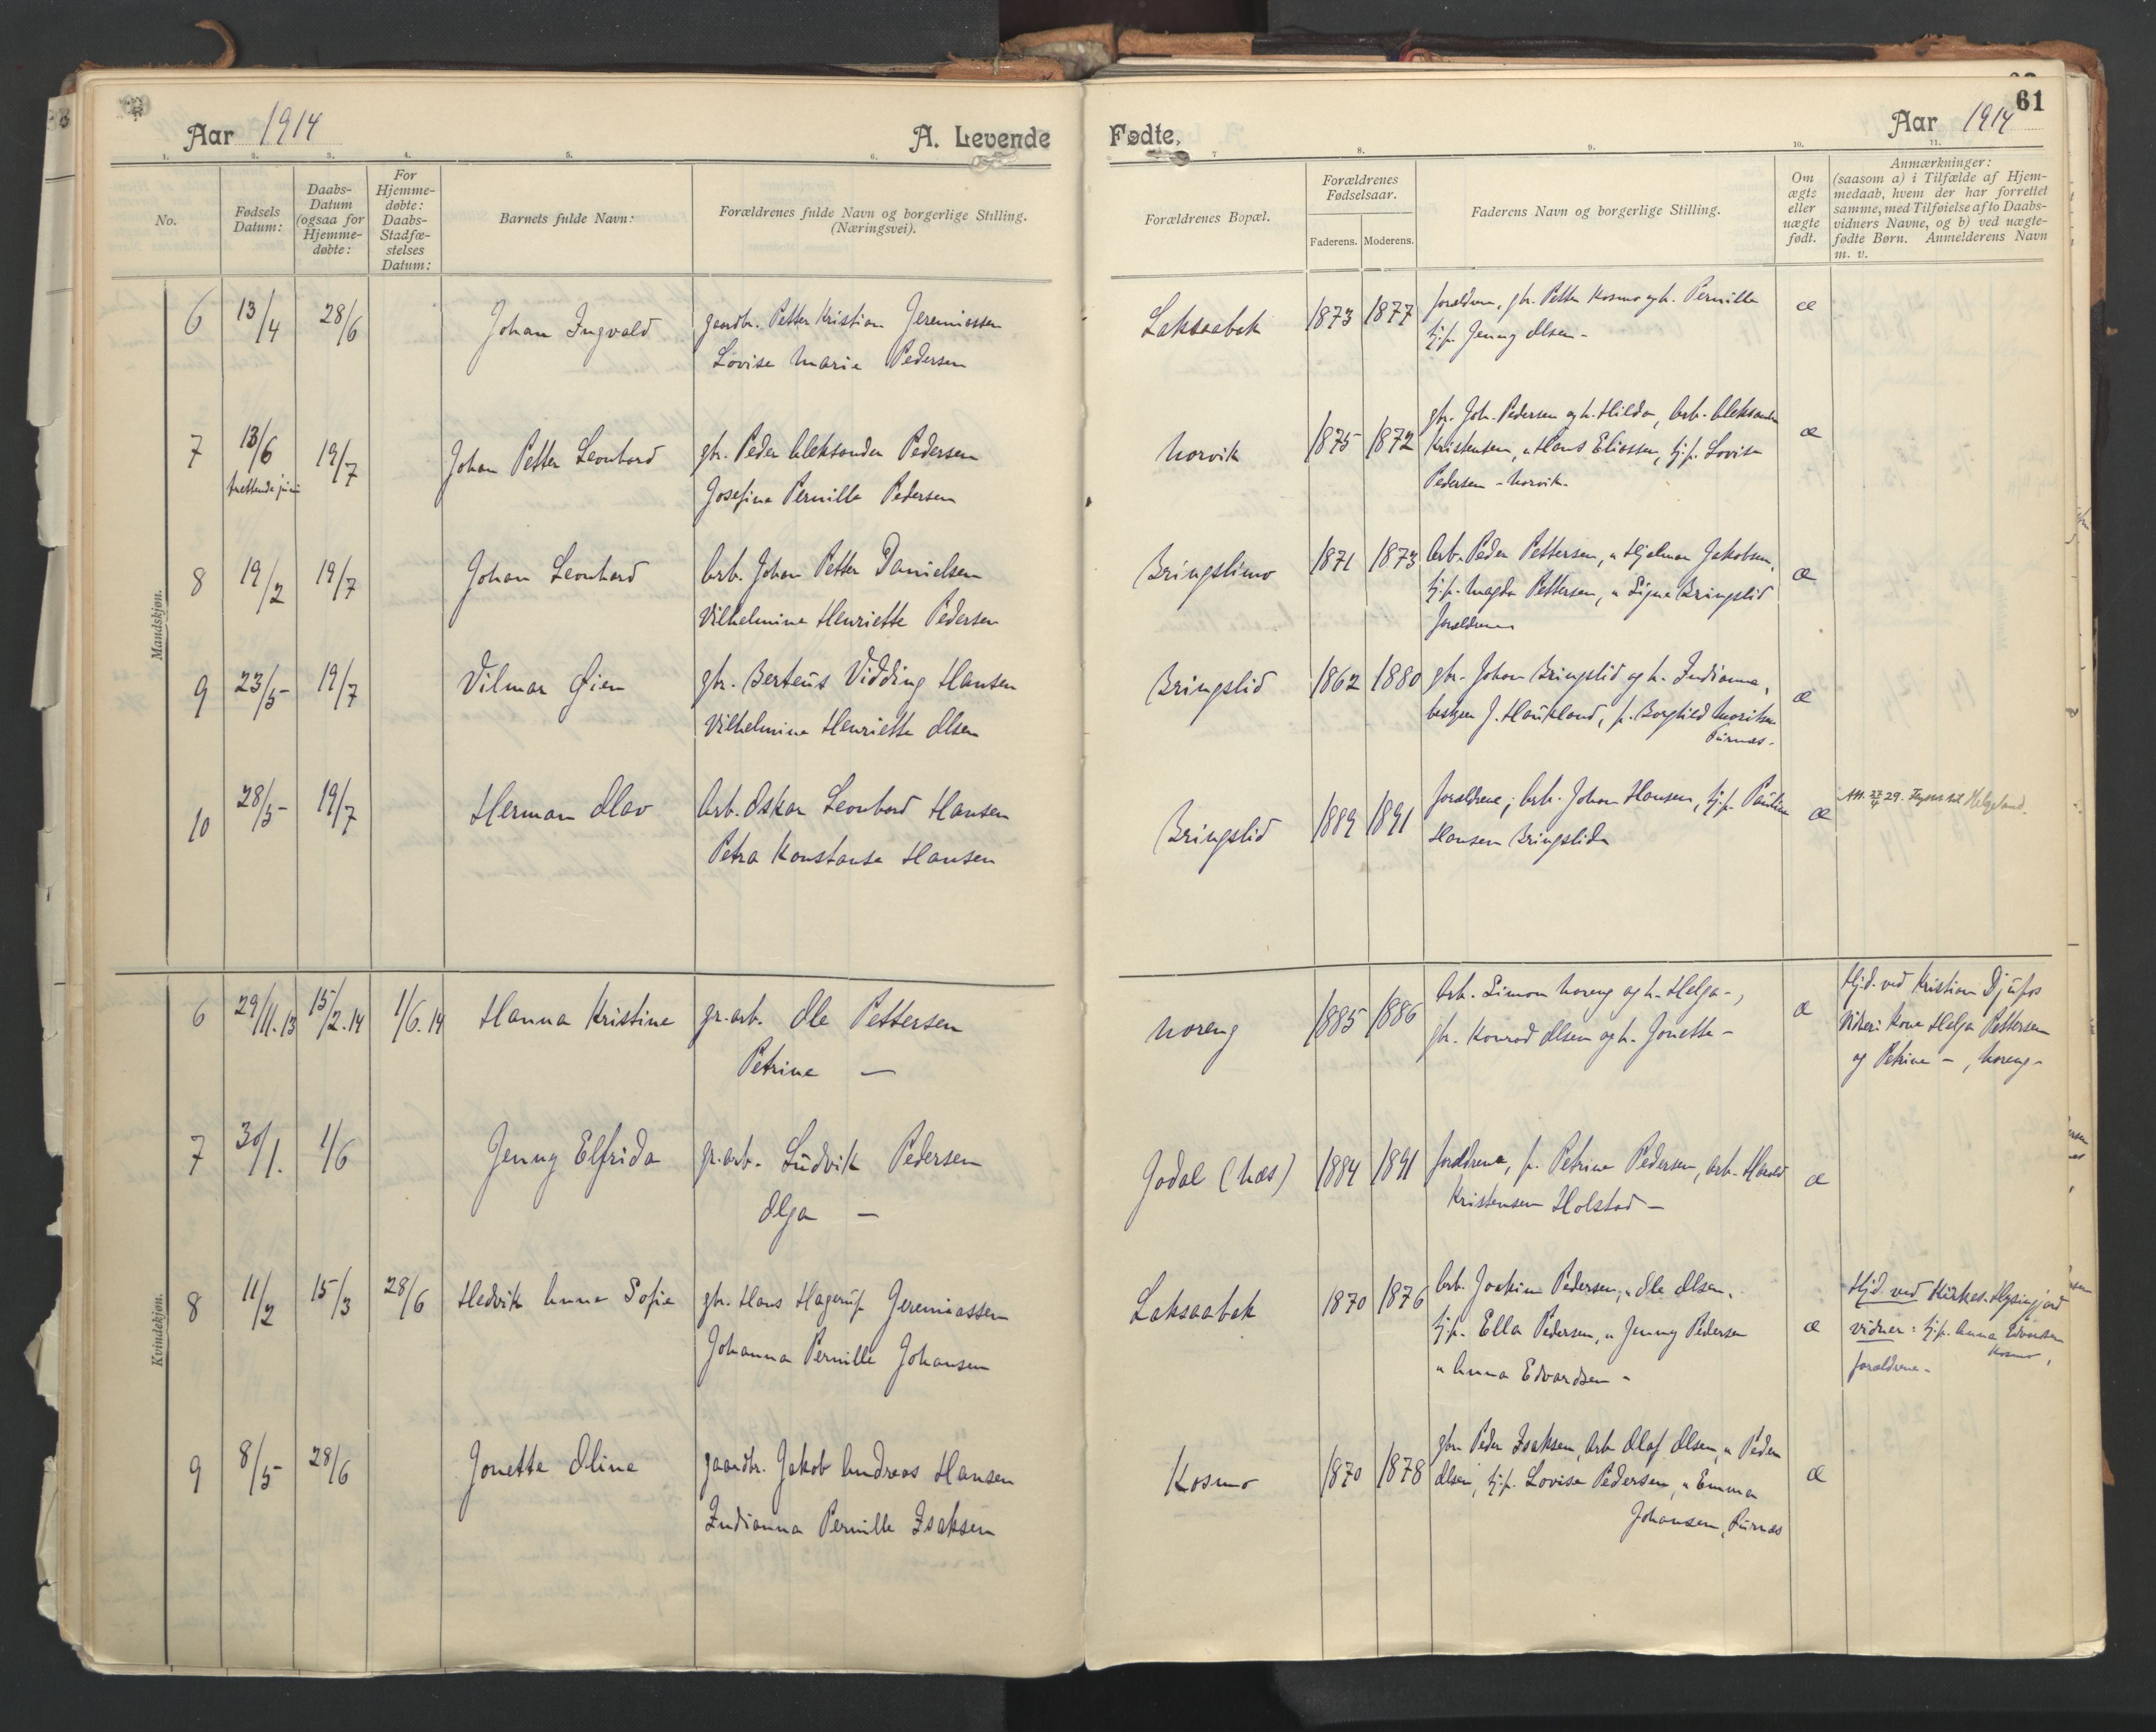 Aar 1914
A. Levende
1. 2. 3. 4. 5. 6.
No.
Fødsels Datum:
Daabs-Datum (ogsaa for Hjemme-døbte:
For Hjemme-døbte: Daabs-Stadfæ-stelses Datum:
Barnets fulde Navn:
Forældrenes fulde Navn og borgerlige Stilling. (Næringsvei).
Mandskjøn.
6 13/4 28/6 Johan Ingvald gaardbr. Petter Kristian Jeremiassen
Lovise Marie Pedersen
7 13/6 19/7 Johan Petter Leonhard gbr. Peder Aleksander Pedersen
trettende juni
Josefine Pernille Pedersen
8 19/2 19/7 Johan Leonhard Arb. Johan Petter Danielsen
Vilhelmine Henriette Pedersen
9 23/5 19/7 Vilmar Øien gbr. Berteus Vidding Hansen
Vilhelmine Henriette Olsen
10 28/5 19/7 Herman Olav Arb. Oskar Leonhard Hansen
Petra Konstanse Hansen
Kvindekjøn.
6 29/11.13 15/2.14 1/6.14 Hanna Kristine gr.arb. Ole Pettersen
Petrine —
7 30/1. 1/6 Jenny Elfrida gr.arb. Ludvik Pedersen
Olga —
8 11/2 15/3 28/6 Hedvik Anna Sofie gbr. Hans Hagerup Jeremiassen
Johanna Pernille Johansen
9 8/5 28/6 Jonette Oline gaardbr. Jakob Andreas Hansen
Indianna Pernille Isaksen
61
Fødte,
Aar 1914
7 8. 9. 10. 11.
Forældrenes Bopæl.
Forældrenes Fødselsaar.
Faderens. Moderens.
Faderens Navn og borgerlige Stilling.
Om ægte eller uægte født.
Anmærkninger:
(saasom a) i Tilfælde af Hjem-
medaab, hvem der har forrettet
samme, med Tilføielse af to Daabs-
vidners Navne, og b) ved uægte-
fødte Børn. Anmelderens Navn
m. v.
Laksaabak 1873 1877 forældrene, gbr. Petter Kosmo og h. Pernille æ
tj.p. Jenny Olsen -
Norvik 1875 1872 gbr. Joh. Pedersen og h. Hilda, Arb. Aleksander æ
Kristensen, " Hans Eliassen, tj.p. Lovise
Pedersen - Norvik.
Bringslimo 1871 1873 Arb. Peder Pettersen, " Hjalmar Jakobsen, æ
tj.p. Magda Pettersen, " Signe Bringslid
forældrene
Bringslid 1862 1880 gbr. Johan Bringslid og h. Indianna, æ
bestyrer J. Haukland, p. Borghild Moritsen
Furnes -
Bringslid 1889 1891 forældrene; Arb. Johan Hansen, tj.p. Pauline æ
Hansen Bringslida
Att. 27/4 29. til Helgeland.
Noreng 1885 1886 Arb. Simon Noreng og h. Helga -, æ
gbr. Konrad Olsen og h. Jonette -
Hjd. ved Kristian Djupos
Vidner: Kone Helga Pettersen
og Petrine -, Noreng -
Godal (Næs) 1884 1891 forældrene, p. Petrine Pedersen, Arb. Harald æ
Kristensen Holstad -
Laksaabak 1870 1876 Arb. Joakim Pedersen, " Ole Olsen, æ
tj.p. Ella Pedersen, " Jenny Pedersen
" Anna Edvardsen -
Hjd. ved Kirkes.
vidner: tj.p. Anna Edvardsen
Kosmo,
forældrene -
Kosmo 1870 1878 gbr Peder Isaksen, Arb Olaf Olsen, " Peder æ
Olsen, tj.p. Lovise Pedersen, " Emma
Johansen, Furnes